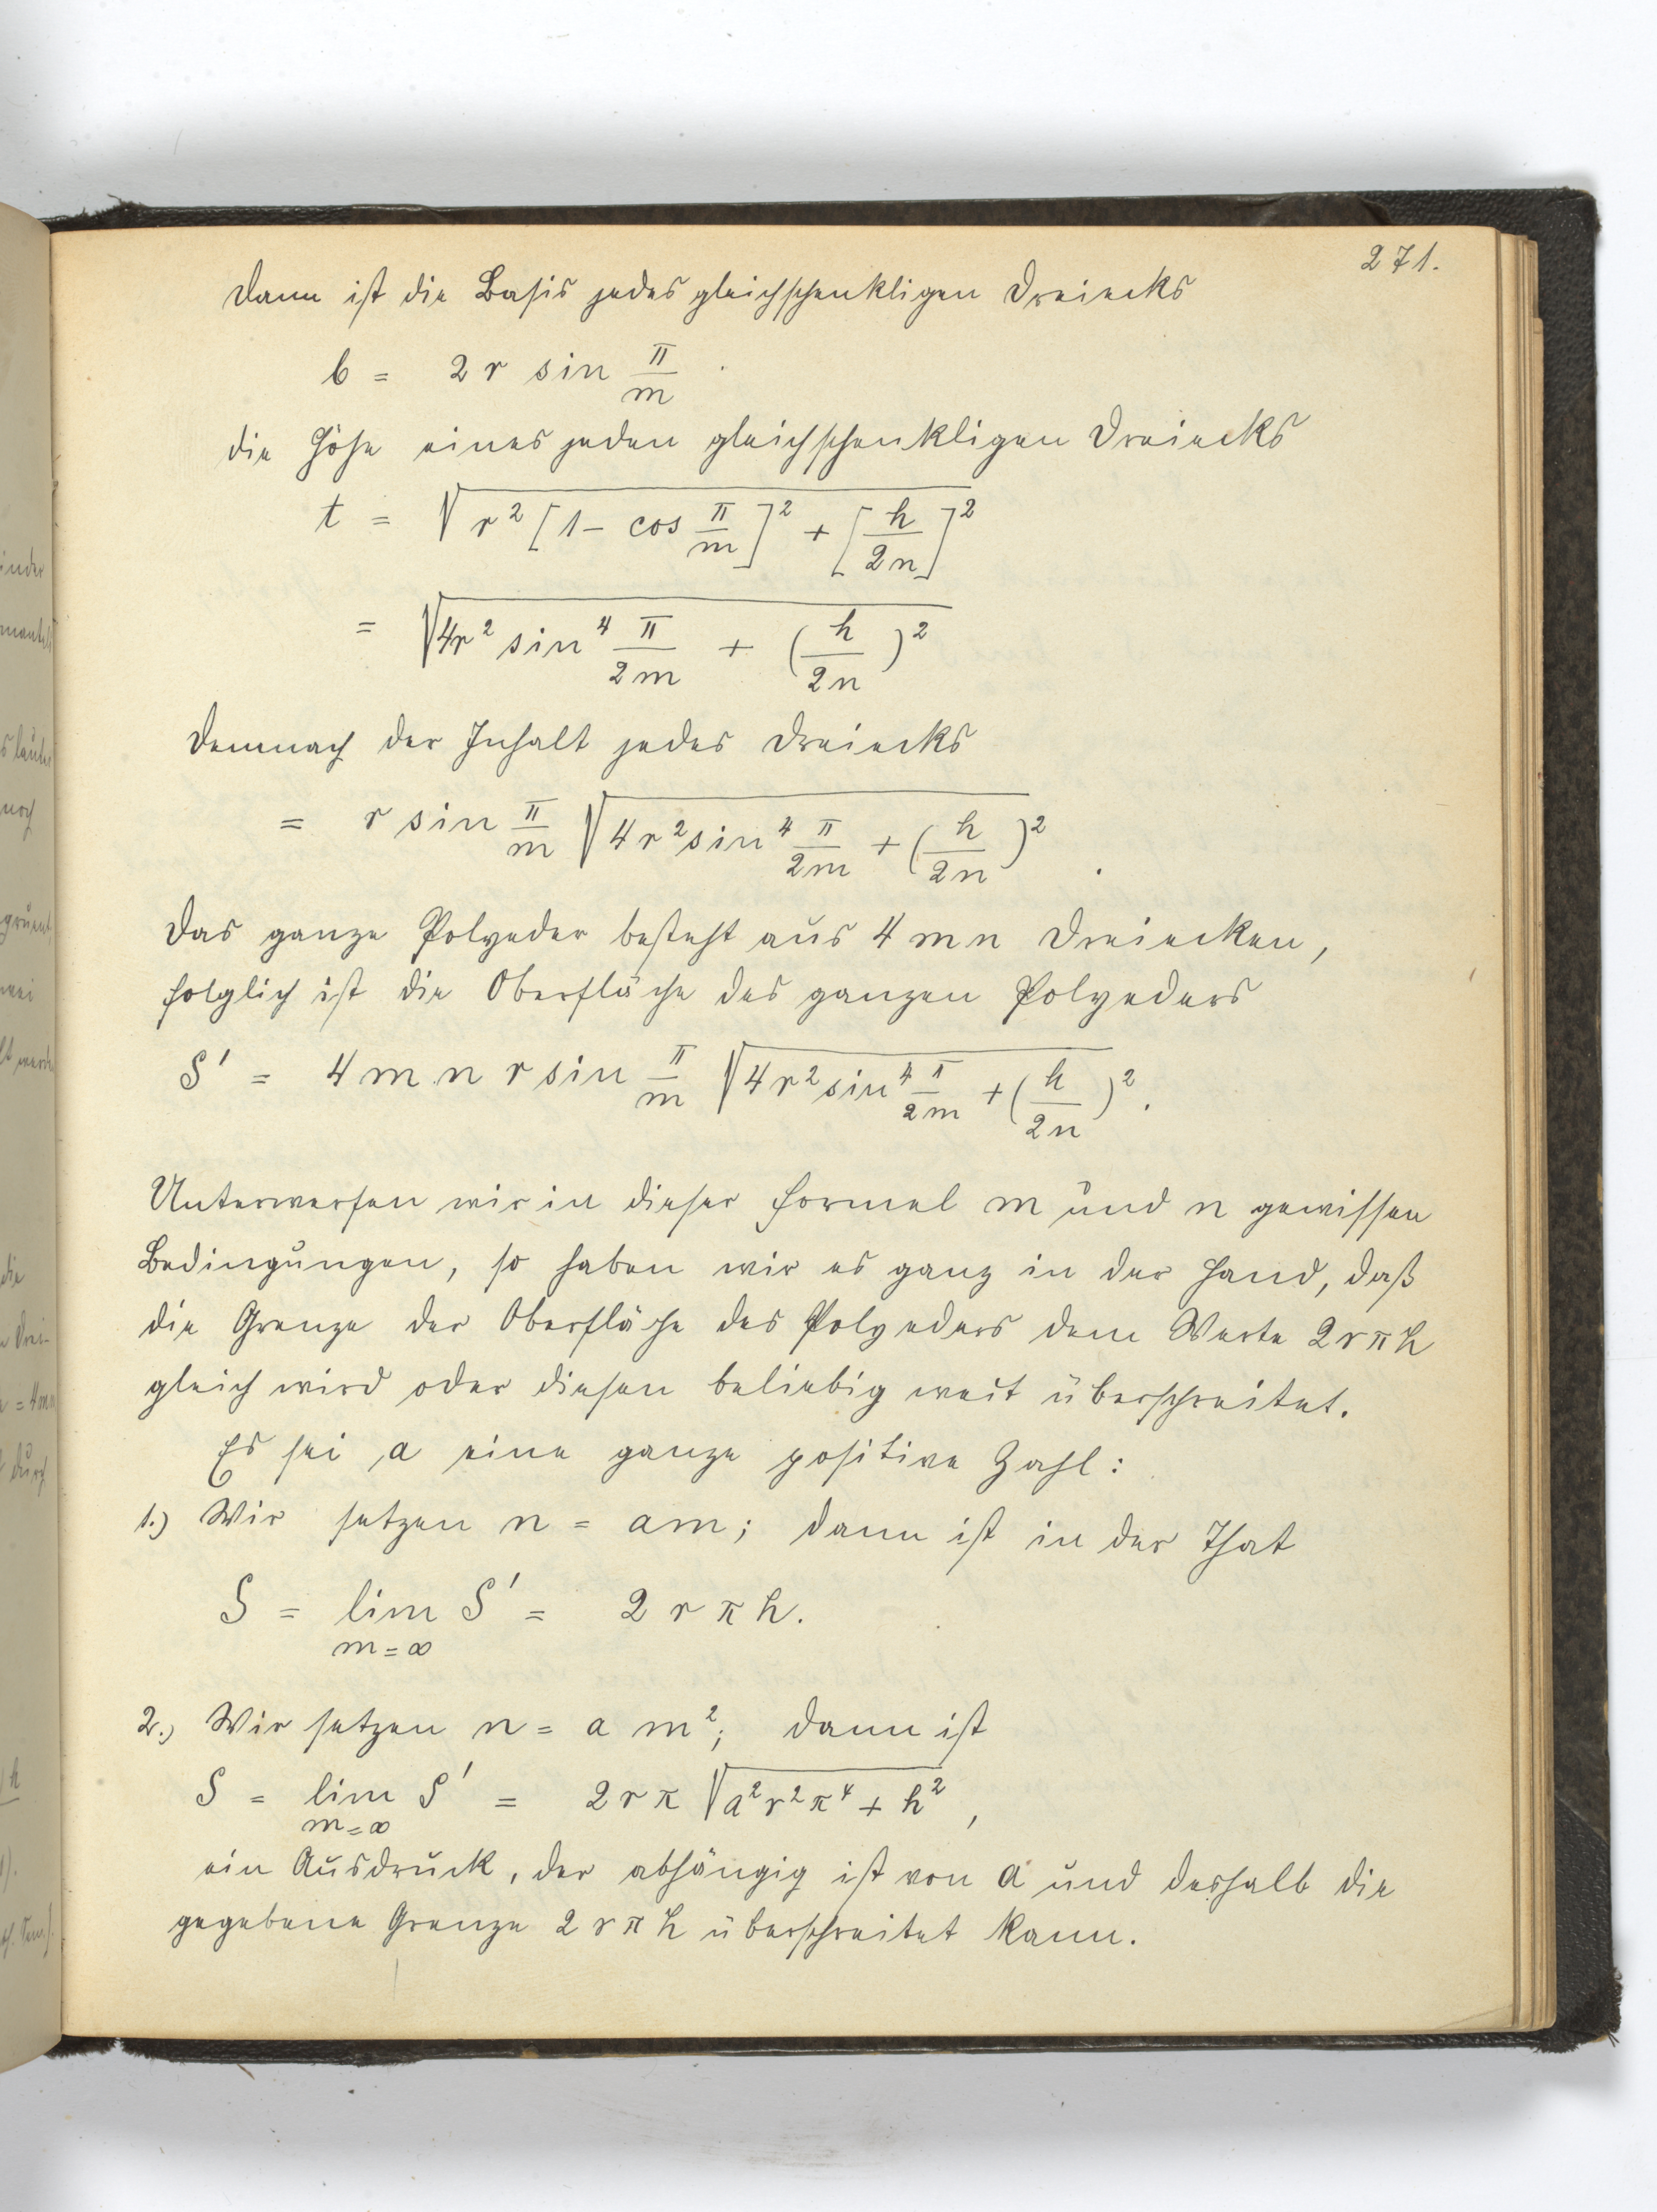 271.
Dann ist die Basis jedes gleichschenkligen Dreiecks
b = 2 r sin π/m
die Höhe eines jeden gleichschenkligen Dreiecks
t = √(r² [1 - cos π/m]² + [h/2n]²)
= √(4r² sin⁴ π/2m + (h/2n)²)
Demnach der Inhalt jedes Dreiecks
= r sin π/m √(4r² sin⁴ π/2m + (h/2n)²) .
Das ganze Polyeder besteht aus 4 m n Dreiecken,
folglich ist die Oberfläche des ganzen Polyeders
S' = 4 m n r sin π/m √(4r² sin⁴ π/2m + (h/2n)²) .
Unterwerfen wir in dieser Formel m und n gewissen
Bedingungen, so haben wir es ganz in der Hand, daß
die Grenze der Oberfläche des Polyeders dem Werte 2rπh
gleich wird oder diesen beliebig weit überschreitet.
Es sei a eine ganze positive Zahl:
1.) Wir setzen n = am; dann ist in der That
S = lim S' = 2 r π h.
m=∞
2.) Wir setzen n = a m²; dann ist
S = lim S' = 2rπ √(a²r²π⁴ + h²) ,
m=∞
ein Ausdruck, der abhängig ist von a und deshalb die
gegebene Grenze 2rπh überschreitet kann.